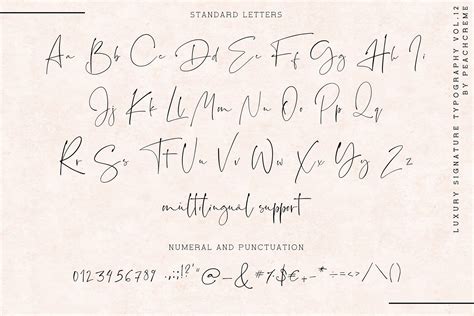 STANDARD LETTERS
Aa Bb Cc Dd Ee Ff Gg Hh Ii
Jj Kk Ll Mm Nn Oo Pp Qq
Rr Ss Tt Uu Vv Ww Xx Yy Zz
multilingual support
NUMERAL AND PUNCTUATION
0123456789 .,:;!?""''@-&#%$€+-*÷=<>/\()
LUXURY SIGNATURE TYPOGRAPHY VOL.12
BY PEACHCREME